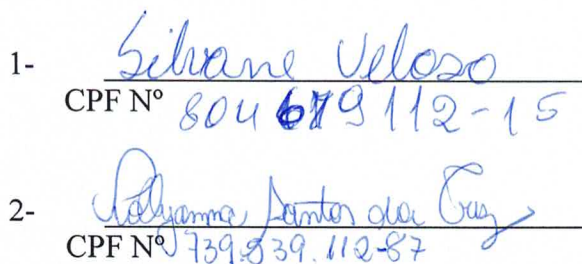 1- Silvane Veloso
CPF Nº 804679112-15
2- Pollyanna Santos da Cruz
CPF Nº 739.839.112-87